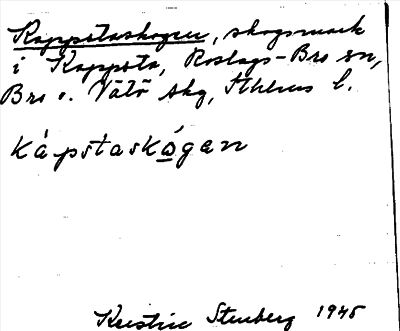 Kappstaskogen, skogsmark
i Kappsta, Roslags-Bro sn,
Bro o. Vätö skg, Sthlms l.
kápstaskógen
Kerstin Stenberg 1945